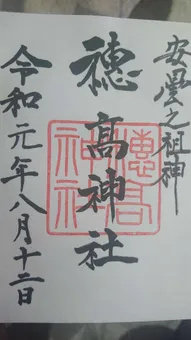 安曇之祖神
穂髙神社
穂高神社
令和元年八月十二日